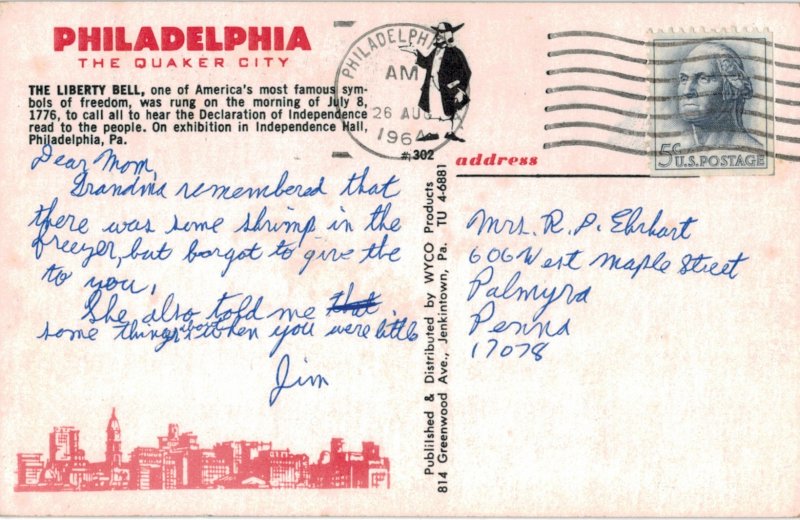 PHILADELPHIA
THE QUAKER CITY
THE LIBERTY BELL, one of America's most famous sym-
bols of freedom, was rung on the morning of July 8,
1776, to call all to hear the Declaration of Independence
read to the people. On exhibition in Independence Hall,
Philadelphia, Pa.
PHILADELPHIA
AM
26 AUG
1964
#302
5¢ U.S. POSTAGE
address
Dear Mom,
Grandma remembered that
there was some shrimp in the
freezer, but borgot to give the
to you.
She also told me that
some things about when you were little
Jim
Publilshed & Distributed by WYCO Products
814 Greenwood Ave., Jenkintown, Pa. TU 4-6881
Mrs. R. P. Ehrhart
606 West Maple Street
Palmyra
Penna
17078